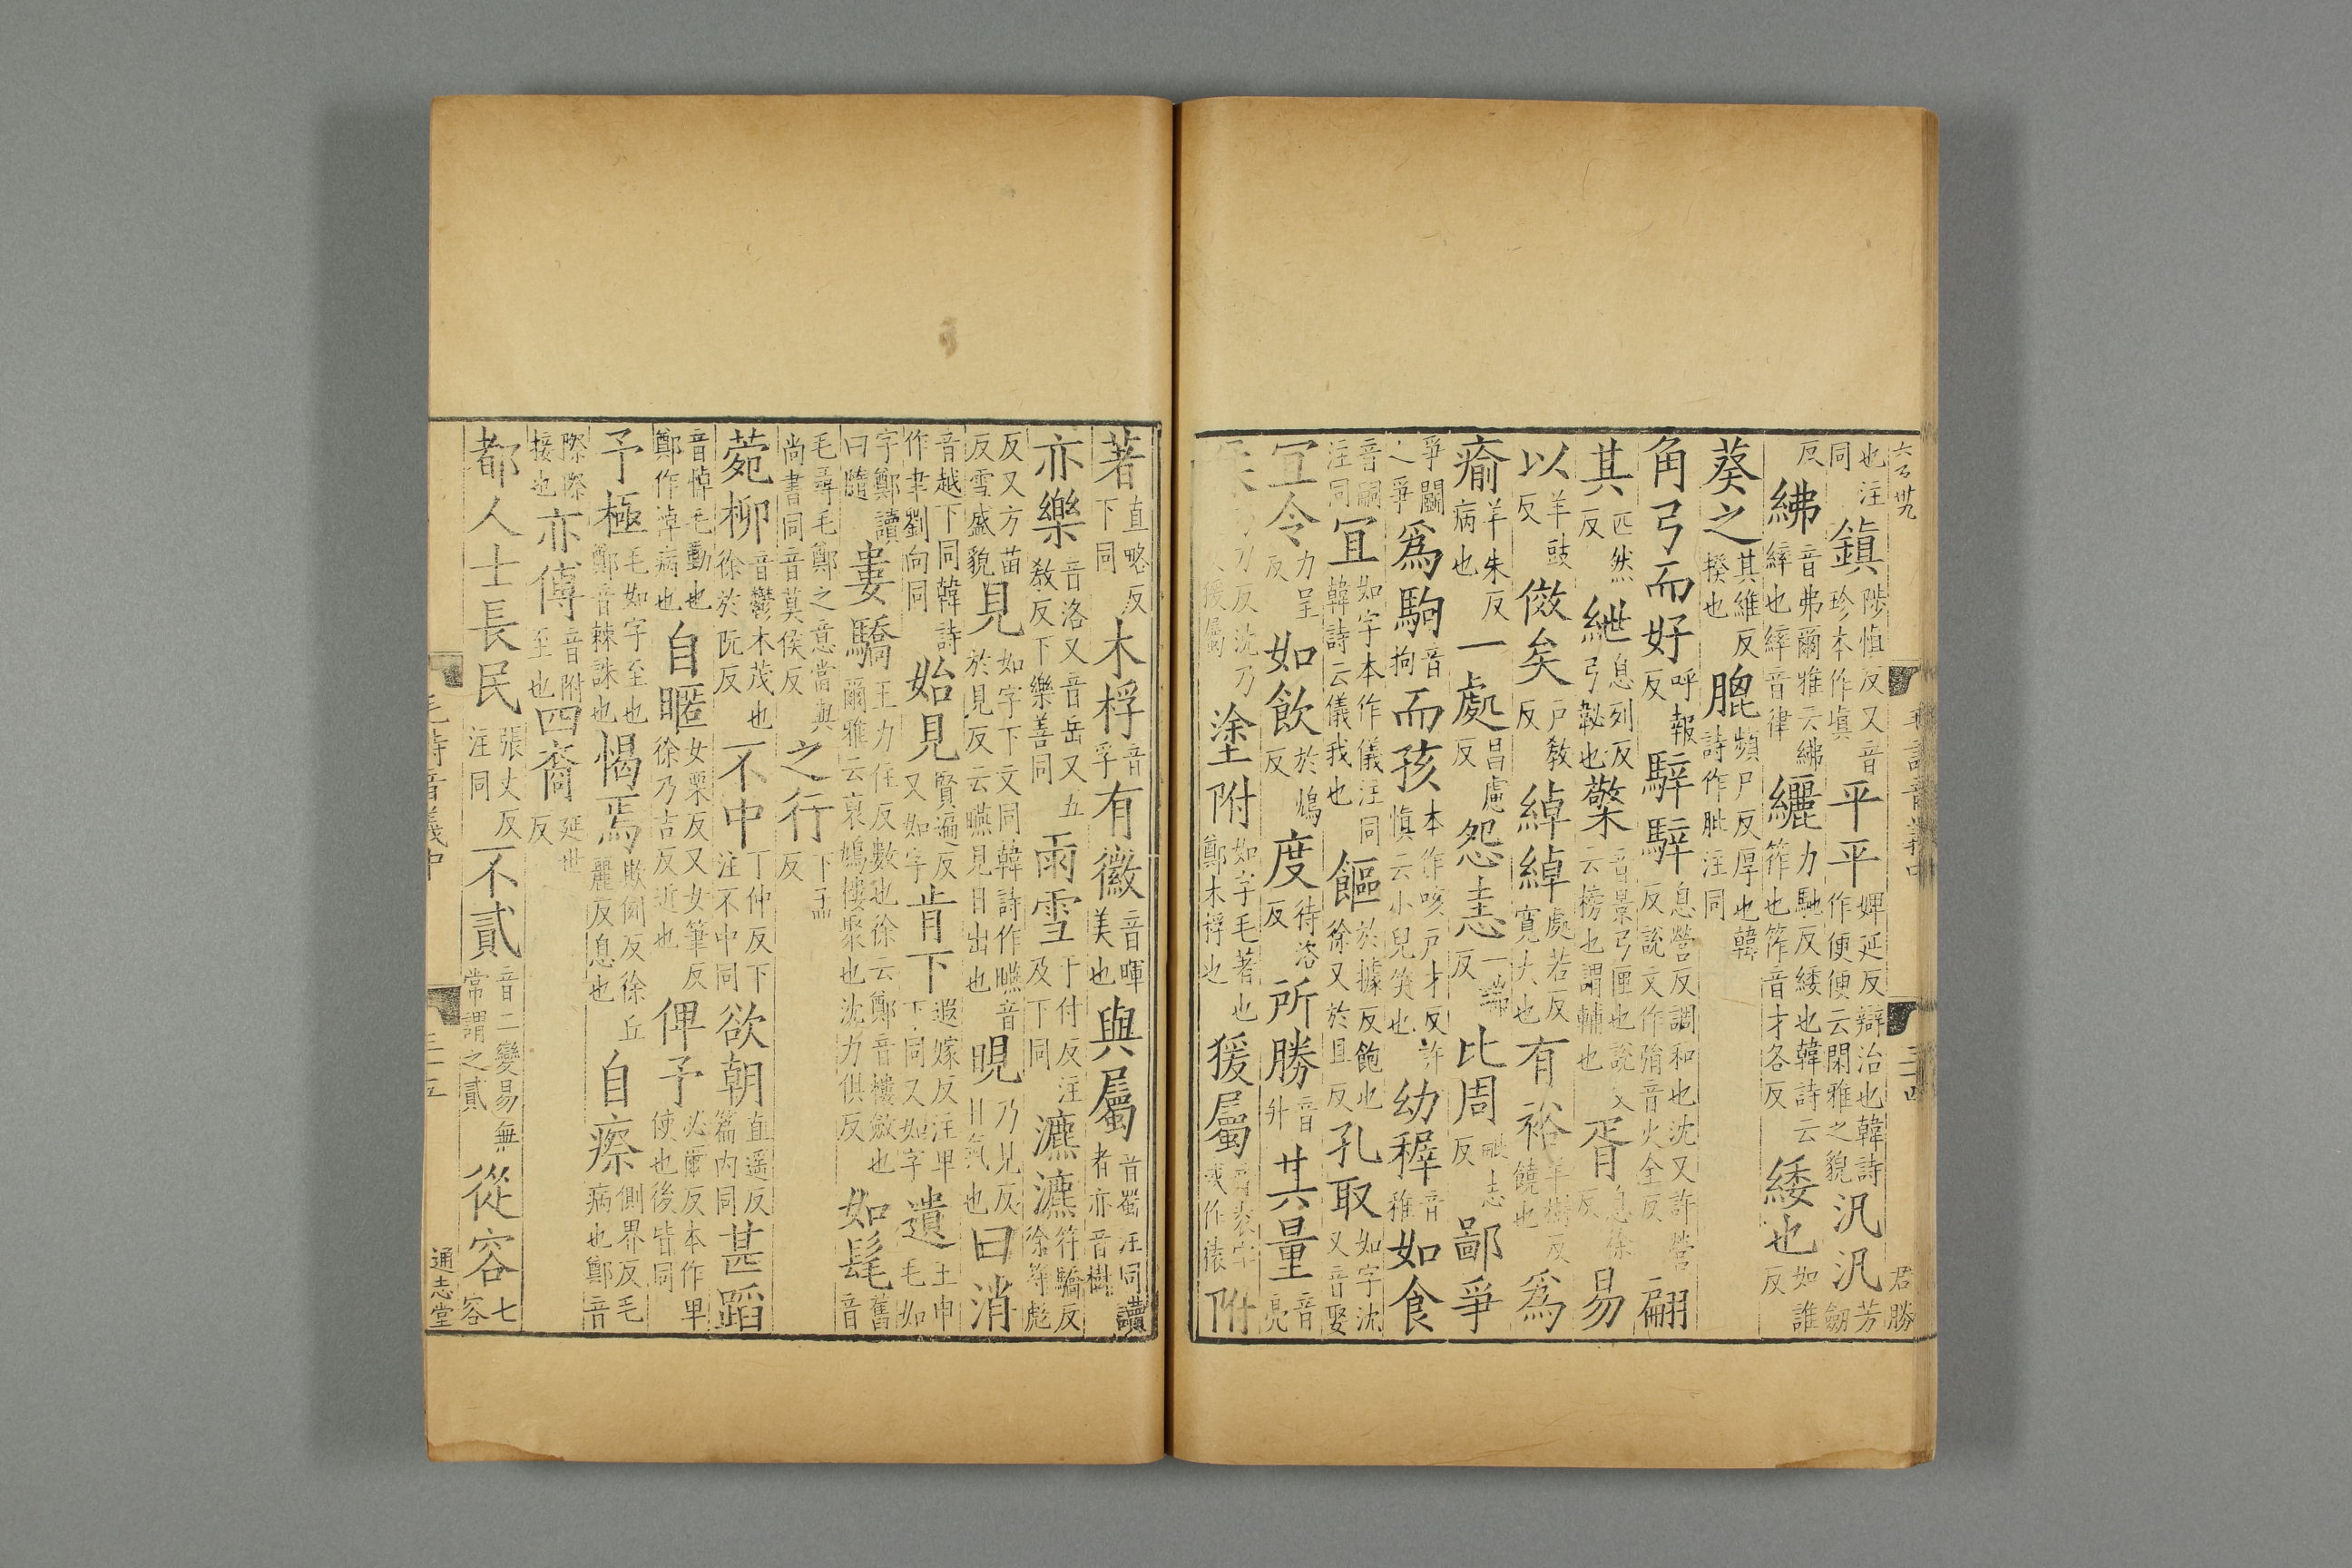 也注同鎮陟愼反又音珍本作塡平平婢延反辯治也韓詩作便便云閑雅之貌汎汎芳劒
反紼音弗爾雅云紼繂也繂音律纚力馳反緌也韓詩云筰也筰音才各反緌也如誰反
葵之其維反揆也膍頻尸反厚也韓詩作肶注同
角弓而好呼報反騂騂息營反調和也沈又許營反說文作弲音火全反翩
其匹然反紲息列反弓䪐也檠音景弓匣也說文云榜也謂輔也胥息徐反易
以羊豉反傚矣戸敎反綽綽處若反寬大也有裕羊樹反饒也爲
瘉羊朱反病也一處昌慮反怨恚一瑞反比周毗志反鄙爭
爭鬬之爭爲駒音拘而孩本作咳戸才反許愼云小兒笑也幼稺音稚如食
音嗣注同宜如字本作儀注同韓詩云儀我也饇於據反飽也徐又於具反孔取如字沈又音娶
宜令力呈反如飲於鴆反度待洛反所勝音升其量音亮
乃刀反沈乃塗附如字毛著也鄭木桴也猨屬音袁字或作猿附
著直略反下同木桴音孚有徽音暉美也與屬音蜀注同讀者亦音樹
亦樂音洛又音岳又五敎反下樂善同雨雪于付反注及下同瀌瀌符驕反徐符彪
反又方苗反雪盛貌見如字下文同韓詩作曣音於見反云曣見日出也晛乃見反日氣也曰消
音越下同韓詩作聿劉向同始見賢遍反又如字肯下遐嫁反注甲下同又如字遺王申毛如
字鄭讀曰隨婁驕王力住反數也徐云鄭音樓斂也爾雅云裒鳩樓聚也沈力俱反如髦舊音
毛尋毛鄭之意當與尚書同音莫侯反之行下孟反
菀柳音鬱木茂也徐於阮反不中丁仲反下注不中同欲朝直遥反篇内同甚蹈
音悼毛動也鄭作悼病也自暱女栗反又女筆反徐乃吉反近也俾予必爾反本作卑使也後皆同
予極毛如字至也鄭音棘誅也愒焉欺例反徐丘麗反息也自瘵側界反毛病也鄭音
際際接也亦傅音附至也四裔延世反
都人士長民張丈反注同不貳音二變易無常謂之貳從容七容
六子丗九
毛詩音義中
三十四
君勝
毛詩音義中
三十五
通志堂